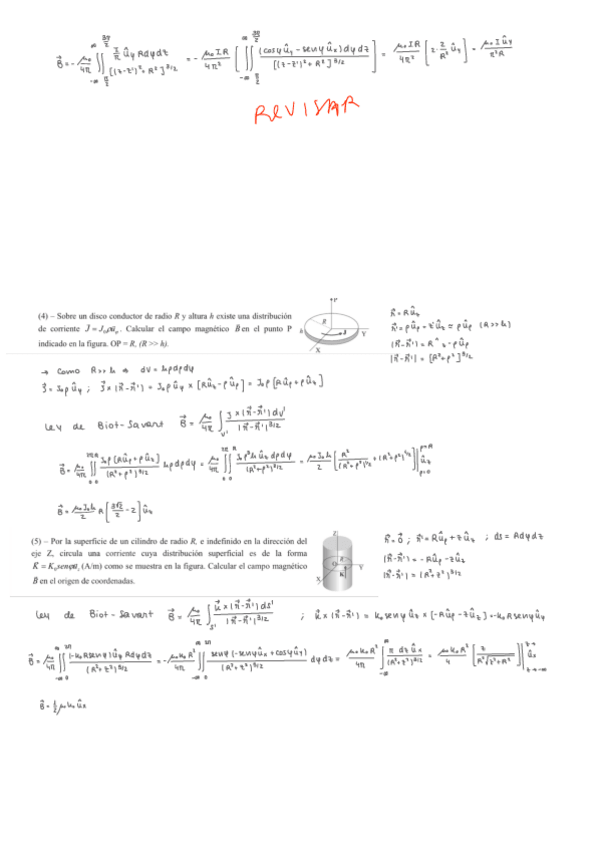 B⃗ = - μ₀/4π ∬_{-∞, π/2}^{∞, 3π/2} (I/π û_φ R dφ dz)/[(z-z')² + R²]^{3/2} = - μ₀ I R/4π² [∬_{-∞, π/2}^{∞, 3π/2} (cosφ û_y - senφ û_x) dφ dz/[(z-z')² + R²]^{3/2}] = μ₀ I R/4π² [2 · 2/R² û_y] = μ₀ I û_y/π² R
REVISAR
(4) – Sobre un disco conductor de radio R y altura h existe una distribución
de corriente J⃗ = J₀ρu⃗_φ. Calcular el campo magnético B⃗ en el punto P
indicado en la figura. OP = R, (R >> h).
P
R
J
Y
X
r⃗ = R û_z
r⃗' = ρ û_ρ + z' û_z ≈ ρ û_ρ (R >> h)
(r⃗ - r⃗') = R û_z - ρ û_ρ
|r⃗ - r⃗'| = [R² + ρ²]^{3/2}
→ Como R >> h ⇒ dV = h ρ dρ dφ
J⃗ = J₀ ρ û_φ ; J⃗ × (r⃗ - r⃗') = J₀ ρ û_φ × [R û_z - ρ û_ρ] = J₀ ρ [R û_ρ + ρ û_z]
Ley de Biot-Savart B⃗ = μ₀/4π ∫_{V'} J × (r⃗ - r⃗') dv'/|r⃗ - r⃗'|^{3/2}
B⃗ = μ₀/4π ∬_{0 0}^{2π R} J₀ρ [R û_ρ + ρ û_z]/(R² + ρ²)^{3/2} h ρ dρ dφ = μ₀/4π ∬_{0 0}^{2π R} J₀ρ³ h û_z dρ dφ/(R² + ρ²)^{3/2} = μ₀ J₀ h/2 [R²/(R² + ρ²)^{1/2} + (R² + ρ²)^{1/2}] û_z |_{ρ=0}^{ρ=R}
B⃗ = μ₀ J₀ h/2 R [3√2/2 - 2] û_z
(5) – Por la superficie de un cilindro de radio R, e indefinido en la dirección del
eje Z, circula una corriente cuya distribución superficial es de la forma
K⃗ = K₀senφu⃗_z (A/m) como se muestra en la figura. Calcular el campo magnético
B⃗ en el origen de coordenadas.
Z
O
R
Y
X
K
r⃗ = 0⃗ ; r⃗' = R û_ρ + z û_z ; ds = R dφ dz
(r⃗ - r⃗') = - R û_ρ - z û_z
|r⃗ - r⃗'| = (R² + z²)^{3/2}
Ley de Biot-Savart B⃗ = μ₀/4π ∫_{S'} k⃗ × (r⃗ - r⃗') ds'/|r⃗ - r⃗'|^{3/2} ; k⃗ × (r⃗ - r⃗') = k₀ senφ û_z × [-R û_ρ - z û_z] = -k₀ R senφ û_φ
B⃗ = μ₀/4π ∬_{-∞ 0}^{∞ 2π} (-k₀ R senφ) û_φ R dφ dz/(R² + z²)^{3/2} = - μ₀ k₀ R²/4π ∬_{-∞ 0}^{∞ 2π} senφ (-senφ û_x + cosφ û_y)/(R² + z²)^{3/2} dφ dz = μ₀ k₀ R²/4π ∫_{-∞}^{∞} π dz û_x/(R² + z²)^{3/2} = μ₀ k₀ R²/4 [z/(R² √(z² + R²))] |_{z→-∞}^{z→∞} û_x
B⃗ = 1/2 μ₀ k₀ û_x